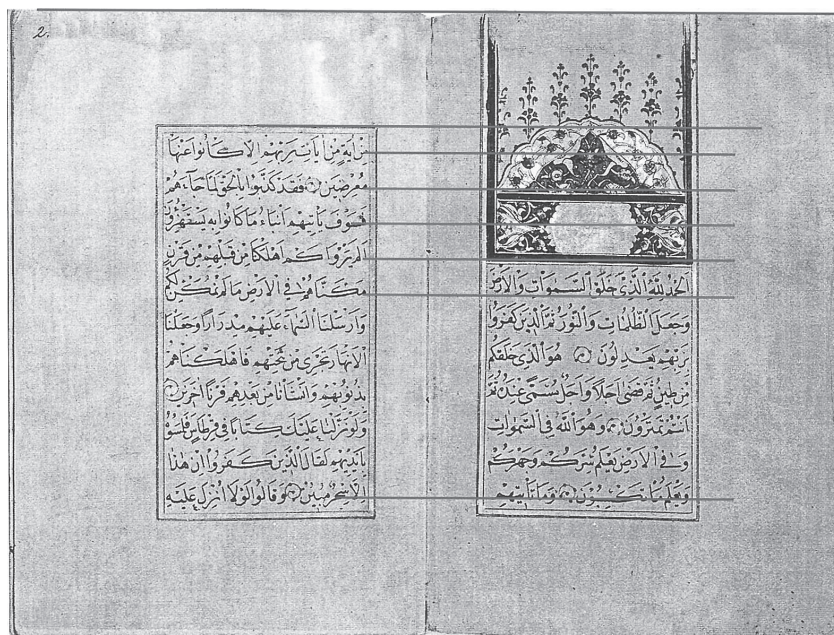 اَلْحَمْدُ لِلّٰهِ الَّذِي خَلَقَ السَّمٰوَاتِ وَالْاَرْضَ
وَجَعَلَ الظُّلُمَاتِ وَالنُّورَ ثُمَّ الَّذِينَ كَفَرُوا
بِرَبِّهِمْ يَعْدِلُونَ هُوَ الَّذِي خَلَقَكُمْ
مِنْ طِينٍ ثُمَّ قَضٰى اَجَلًا وَاَجَلٌ مُسَمًّى عِنْدَهُ ثُمَّ
اَنْتُمْ تَمْتَرُونَ وَهُوَ اللّٰهُ فِي السَّمٰوَاتِ
وَفِي الْاَرْضِ يَعْلَمُ سِرَّكُمْ وَجَهْرَكُمْ
وَيَعْلَمُ مَا تَكْسِبُونَ وَمَا تَأْتِيهِمْ
2.
مِنْ اٰيَةٍ مِنْ اٰيَاتِ رَبِّهِمْ اِلَّا كَانُوا عَنْهَا
مُعْرِضِينَ فَقَدْ كَذَّبُوا بِالْحَقِّ لَمَّا جَاءَهُمْ
فَسَوْفَ يَأْتِيهِمْ اَنْبَاءُ مَا كَانُوا بِهِ يَسْتَهْزِؤُنَ
اَلَمْ يَرَوْا كَمْ اَهْلَكْنَا مِنْ قَبْلِهِمْ مِنْ قَرْنٍ
مَكَّنَّاهُمْ فِي الْاَرْضِ مَا لَمْ نُمَكِّنْ لَكُمْ
وَاَرْسَلْنَا السَّمَاءَ عَلَيْهِمْ مِدْرَارًا وَجَعَلْنَا
الْاَنْهَارَ تَجْرِي مِنْ تَحْتِهِمْ فَاَهْلَكْنَاهُمْ
بِذُنُوبِهِمْ وَاَنْشَأْنَا مِنْ بَعْدِهِمْ قَرْنًا اٰخَرِينَ
وَلَوْ نَزَّلْنَا عَلَيْكَ كِتَابًا فِي قِرْطَاسٍ فَلَمَسُوهُ
بِاَيْدِيهِمْ لَقَالَ الَّذِينَ كَفَرُوا اِنْ هٰذَا
اِلَّا سِحْرٌ مُبِينٌ وَقَالُوا لَوْلَا اُنْزِلَ عَلَيْهِ